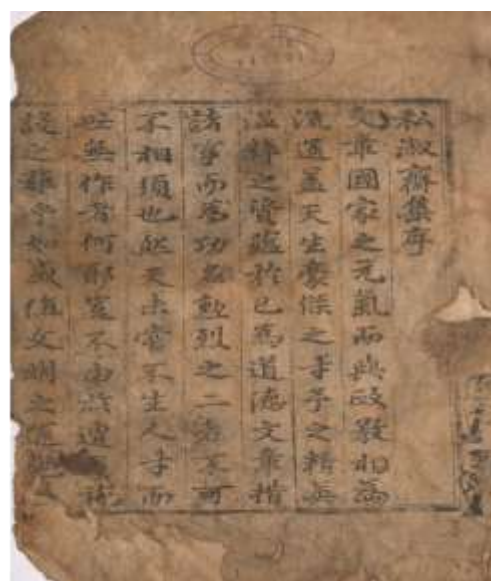 私淑齋集序
文章國家之元氣而與政教相爲
流通盖天生豪俊之才予之精英
温粹之資蘊於己爲道德文章措
諸事而爲功名勲烈之二者不可
不相須也然天未嘗不生人才而
世無作者何耶寔不由於遭
之難今如盛値文明之運